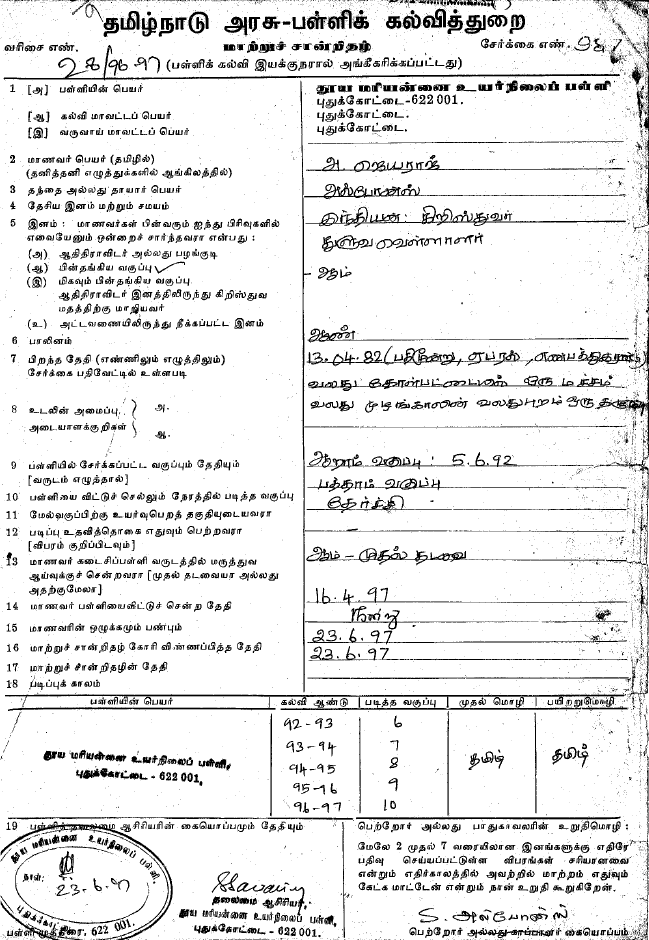 தமிழ்நாடு அரசு-பள்ளிக் கல்வித்துறை
வரிசை எண். மாற்றுச் சான்றிதழ் சேர்க்கை எண்.
28/96-97 (பள்ளிக் கல்வி இயக்குநரால் அங்கீகரிக்கப்பட்டது)
1 [அ] பள்ளியின் பெயர் தூய மரியன்னை உயர்நிலைப் பள்ளி
புதுக்கோட்டை-622 001.
[ஆ] கல்வி மாவட்டப் பெயர் புதுக்கோட்டை.
[இ] வருவாய் மாவட்டப் பெயர் புதுக்கோட்டை.
2 மாணவர் பெயர் (தமிழில்) அ. ஜெயராஜ்
(தனித்தனி எழுத்துக்களில் ஆங்கிலத்தில்)
3 தந்தை அல்லது தாயார் பெயர் அல்போன்ஸ்
4 தேசிய இனம் மற்றும் சமயம் இந்தியன்: கிறிஸ்துவர்
5 இனம் : மாணவர்கள் பின்வரும் ஐந்து பிரிவுகளில் துளுவ வெள்ளாளர்
எவையேனும் ஒன்றைச் சார்ந்தவரா என்பது :
(அ) ஆதிதிராவிடர் அல்லது பழங்குடி
(ஆ) பின்தங்கிய வகுப்பு ✓ - ஆம்
(இ) மிகவும் பின்தங்கிய வகுப்பு
ஆதிதிராவிடர் இனத்திலிருந்து கிறிஸ்துவ
மதத்திற்கு மாறியவர்
(உ) அட்டவணையிலிருந்து நீக்கப்பட்ட இனம்
6 பாலினம் ஆண்
7 பிறந்த தேதி (எண்ணிலும் எழுத்திலும்) 13.04.82 (பதிமூன்று, ஏப்ரல், எண்பத்திரண்டு)
சேர்க்கை பதிவேட்டில் உள்ளபடி
வலது தோள்பட்டையில் ஒரு மச்சம்
8 உடலின் அமைப்பு அ. வலது முழங்காலின் வலதுபுறம் ஒரு
அடையாளக்குறிகள் ஆ.
9 பள்ளியில் சேர்க்கப்பட்ட வகுப்பும் தேதியும் ஆறாம் வகுப்பு : 5.6.92
[வருடம் எழுத்தால்]
10 பள்ளியை விட்டுச் செல்லும் நேரத்தில் படித்த வகுப்பு பத்தாம் வகுப்பு
11 மேல்வகுப்பிற்கு உயர்வுபெறத் தகுதியுடையவரா தேர்ச்சி
12 படிப்பு உதவித்தொகை எதுவும் பெற்றவரா –
[விபரம் குறிப்பிடவும்]
13 மாணவர் கடைசிப்பள்ளி வருடத்தில் மருத்துவ ஆம் – முதல் தடவை
ஆய்வுக்குச் சென்றவரா [முதல் தடவையா அல்லது
அதற்குமேலா]
14 மாணவர் பள்ளியைவிட்டுச் சென்ற தேதி 16.4.97
15 மாணவரின் ஒழுக்கமும் பண்பும் நன்று
16 மாற்றுச் சான்றிதழ் கோரி விண்ணப்பித்த தேதி 23.6.97
17 மாற்றுச் சான்றிதழின் தேதி 23.6.97
18 படிப்புக் காலம்
பள்ளியின் பெயர் கல்வி ஆண்டு படித்த வகுப்பு முதல் மொழி பயிற்றுமொழி
92-93 6
93-94 7
தூய மரியன்னை உயர்நிலைப் பள்ளி, தமிழ் தமிழ்
94-95 8
புதுக்கோட்டை - 622 001.
95-96 9
96-97 10
19 பள்ளித் தலைமை ஆசிரியரின் கையொப்பமும் தேதியும்
பெற்றோர் அல்லது பாதுகாவலரின் உறுதிமொழி :
மேலே 2 முதல் 7 வரையிலான இனங்களுக்கு எதிரே
பதிவு செய்யப்பட்டுள்ள விபரங்கள் சரியானவை
என்றும் எதிர்காலத்தில் அவற்றில் மாற்றம் எதுவும்
கேட்க மாட்டேன் என்றும் நான் உறுதி கூறுகிறேன்.
தூய மரியன்னை உயர்நிலைப் பள்ளி.
நாள்: 23.6.97
புதுக்கோட்டை 622 001.
பள்ளி முத்திரை,
தலைமை ஆசிரியர்,
தூய மரியன்னை உயர்நிலைப் பள்ளி,
புதுக்கோட்டை - 622 001.
S. அல்போன்ஸ்
பெற்றோர் அல்லது காப்பாளர் கையொப்பம்